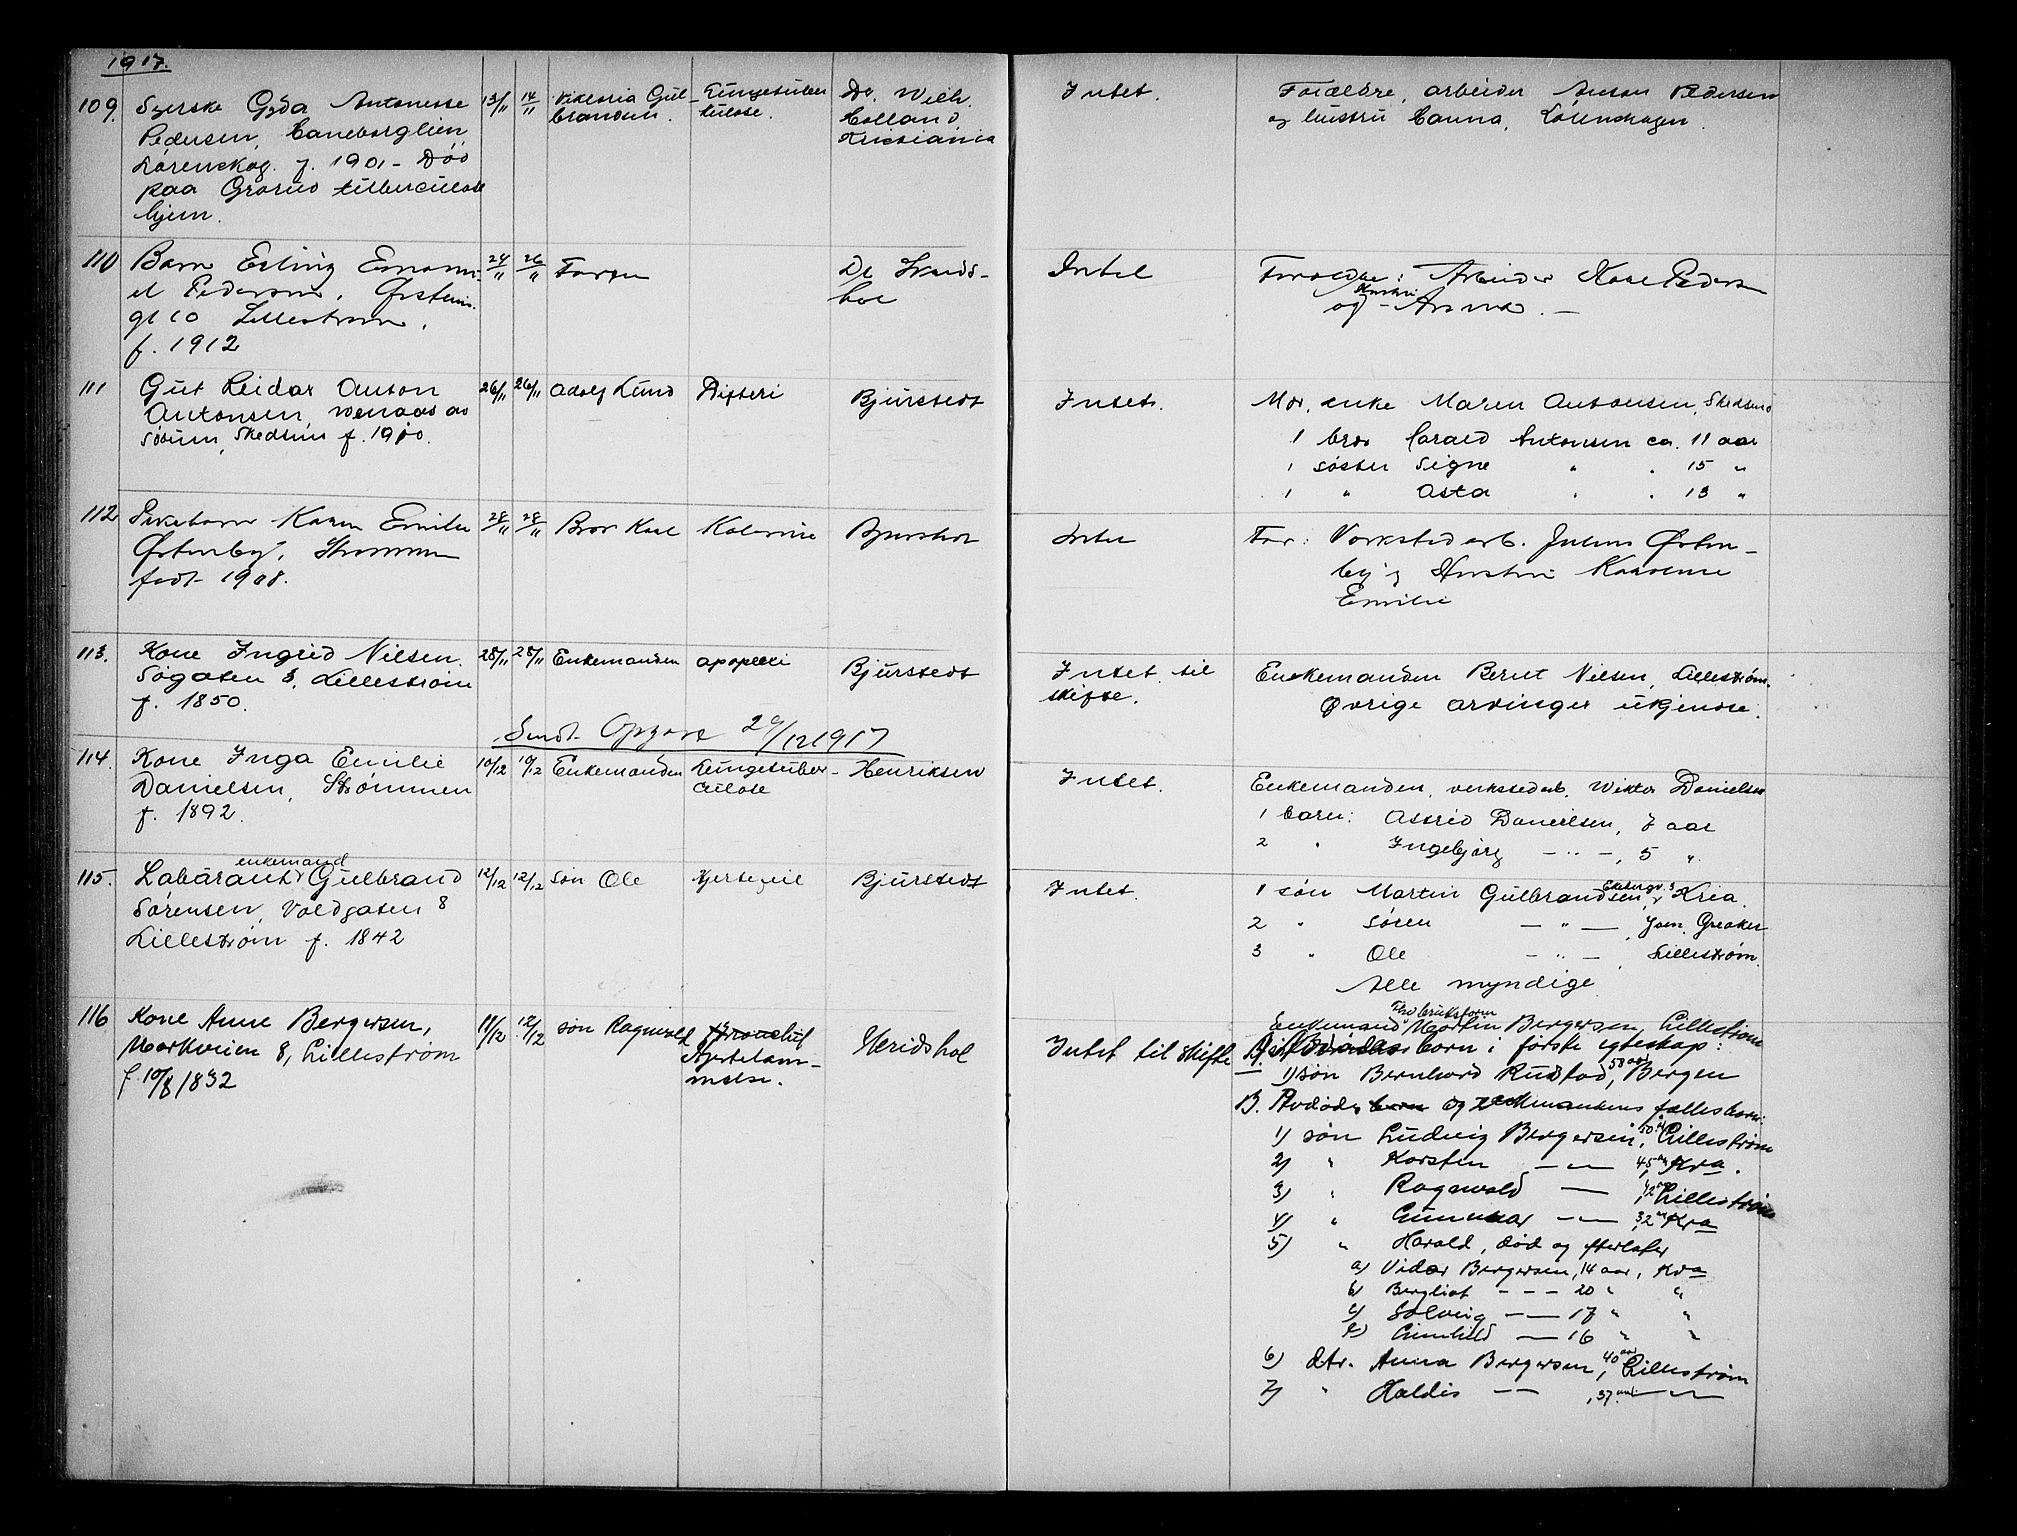 1917.
109. Syerske Gyda Antonette 13/11 14/11 Viktoria Gul- Lungetuber- Dr. Wilh. Intet. Forældre, arbeider Anton Pedersen
Pedersen, Haneborglien brandsen. kulose. Holland og hustru Hanna, Lørenskogen.
Lørenskog. f. 1901 - Død Kristiania
paa Grorud tuberculose
hjem.
110 Barn Erling Emanu- 24/11 26/11 Faren Dr Intet Forældre: Arbeider Pedersen
el Pedersen, og hustru Anna. -
gt 10 Lillestrøm,
f. 1912
111 Gut Reidar Anton 26/11 26/11 Adolf Lund Difteri Bjurstedt Intet. Mor, enke Maren Antonsen, Skedsmo
Antonsen,
Sørum, Skedsmo f. 1910. 1 bror Harald Antonsen ca. 11 aar
1 søster Signe " . 15 "
1 " Asta " . 13 "
112 Pikebarn Karen Emilie 28/11 28/11 Bror Karl Bjurstedt Intet Far: Verkstedarb. Julius Østen-
Østenby, Strømmen by og Hustru
født 1908. Emilie
113. Kone Ingrid Nilsen 28/11 28/11 Enkemanden apoplexi Bjurstedt Intet til Enkemanden Bernt Nilsen, Lillestrøm.
Søgaten 8, Lillestrøm skifte. Øvrige arvinger ukjendte.
f. 1850.
Sendt Opgave 20/12 1917
114. Kone Inga Emilie 10/12 10/12 Enkemanden Lungetuber- Henriksen Intet. Enkemanden, verkstedarb. Wiktor Danielsen
Danielsen, Strømmen culose 1 barn: Astrid Danielsen, 7 aar
f. 1892. 2 " Ingebjørg - " -, 5 "
enkemand
115. Gulbrand 12/12 12/12 søn Ole Hjertefeil Bjurstedt Intet. 1 søn Martin Gulbrandsen, Kria.
Sørensen, Voldgaten 8 2 " Søren - " -, Greaker
Lillestrøm f. 1842 3 " Ole - " -, Lillestrøm.
Alle myndige.
116 Kone Anne Bergersen, 11/12 12/12 søn Ragnvald Intet til skifte Enkemand Martin Bergersen, Lillestrøm
Markveien 8, Lillestrøm barn i første egteskap:
f. 10/8 1832 1) søn Bernhard Rustad, 58 aar, Bergen
B. Avdødes og enkemandens fællesbarn:
1) søn Ludvig Bergersen, 50 aar, Lillestrøm
2) " Karsten - " - 45 aar, Kra.
3) " Ragnvald - , 42 aar, Lillestrøm
4) " Gunnar - - , 32 aar Kra
5) " Harald, død og efterlater
a) Vidar Bergersen, 14 aar, Kra
b) Bergliot - - - 20 " "
c) Solveig - - 17 " "
d) Gunhild - 16 " "
6) dtr. Anna Bergersen, 40 aar, Lillestrøm
7) " Haldis - - , 37 aar - " -